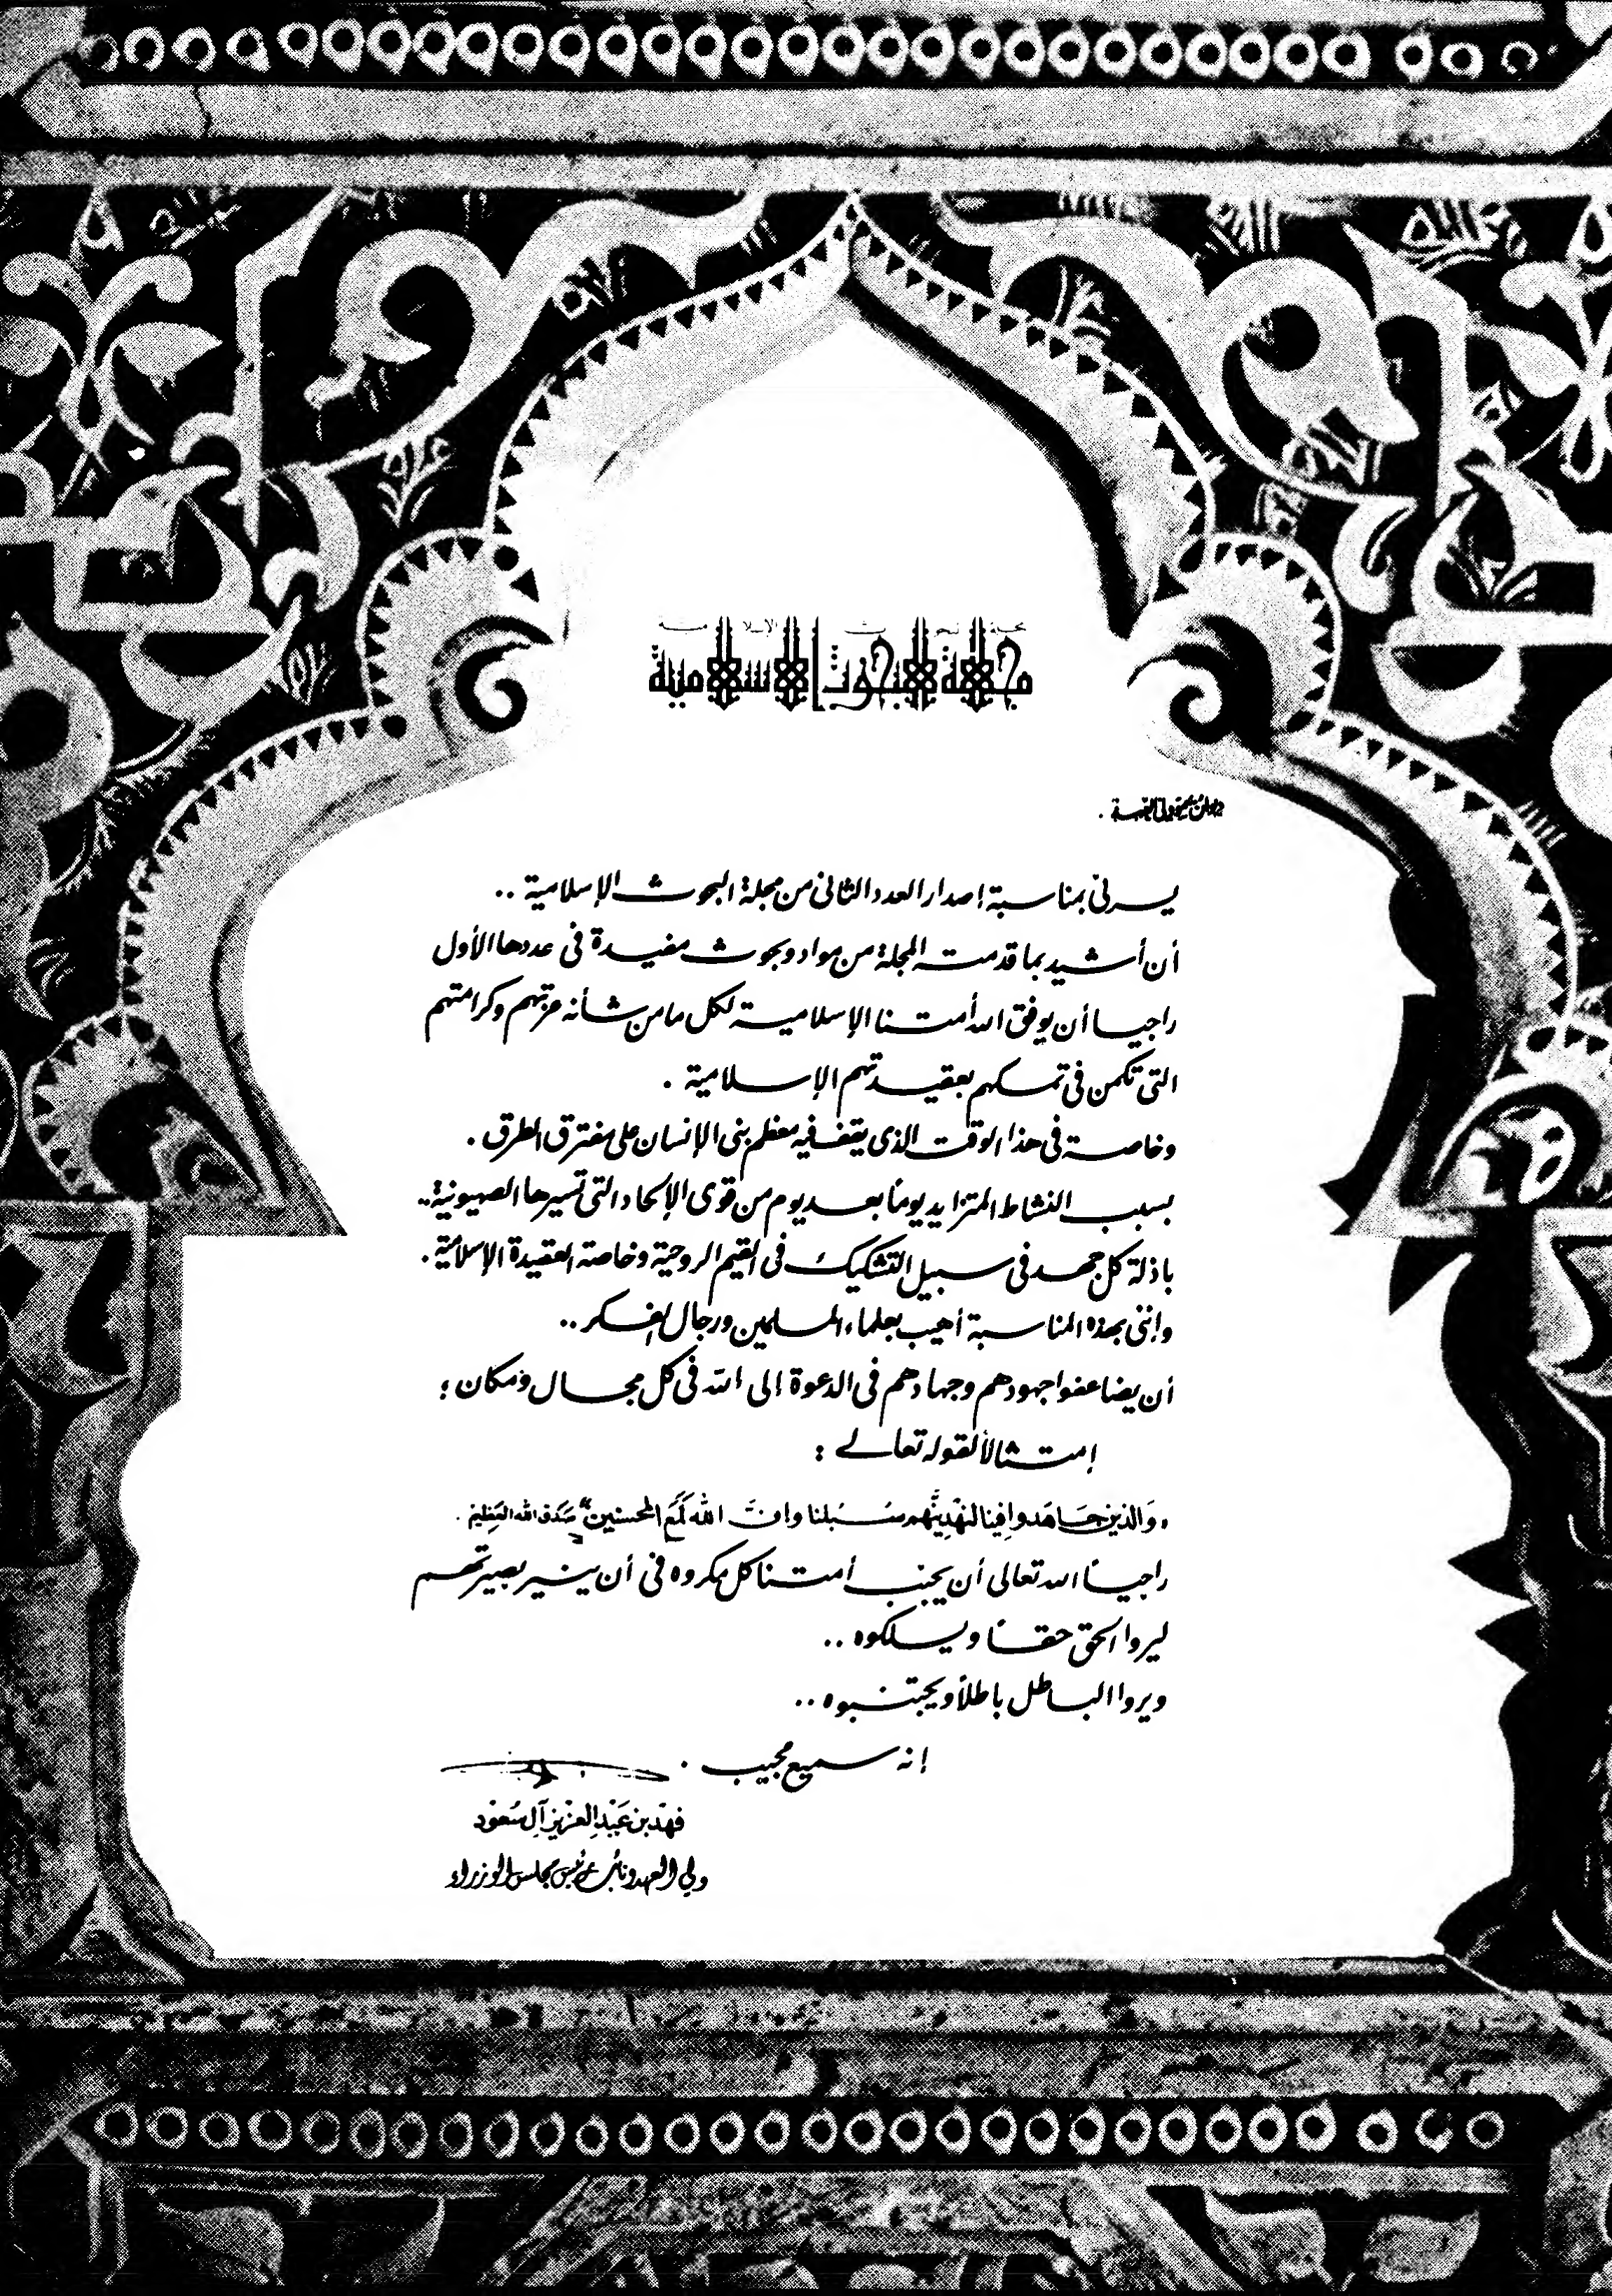 مجلة البحوث الإسلامية
يسرني بمناسبة إصدار العدد الثاني من مجلة البحوث الإسلامية ..
أن أشيد بما قدمته المجلة من مواد وبحوث مفيدة في عددها الأول
راجيا أن يوفق الله أمتنا الإسلامية لكل ما من شأنه عزتهم وكرامتهم
التي تكمن في تمسكهم بعقيدتهم الإسلامية .
وخاصة في هذا الوقت الذي يقف فيه معظم بني الإنسان على مفترق الطرق .
بسبب النشاط المتزايد يوماً بعد يوم من قوى الإلحاد التي تسيرها الصهيونية ..
باذلة كل جهد في سبيل التشكيك في القيم الروحية وخاصة العقيدة الإسلامية .
وإنني بهذه المناسبة أهيب بعلماء المسلمين ورجال الفكر ..
أن يضاعفوا جهودهم وجهادهم في الدعوة الى الله في كل مجال ومكان ؛
إمتثالاً لقوله تعالى :
وَالذين جَاهَدوا فِينا لنهْدِينَّهُم سُبُلنا وانَّ اللهَ لَمَعَ المحسنين" صَدَق الله العَظِيم .
راجياً الله تعالى أن يجنب أمتنا كل مكروه في أن ينير بصيرتهم
ليروا الحق حقاً ويسلكوه ..
ويروا الباطل باطلاً ويجتنبوه ..
إنه سميع مجيب .
فهد بن عَبْدِ العزيز آل سُعُود
ولي العهد ونائب رئيس مجلس الوزراء